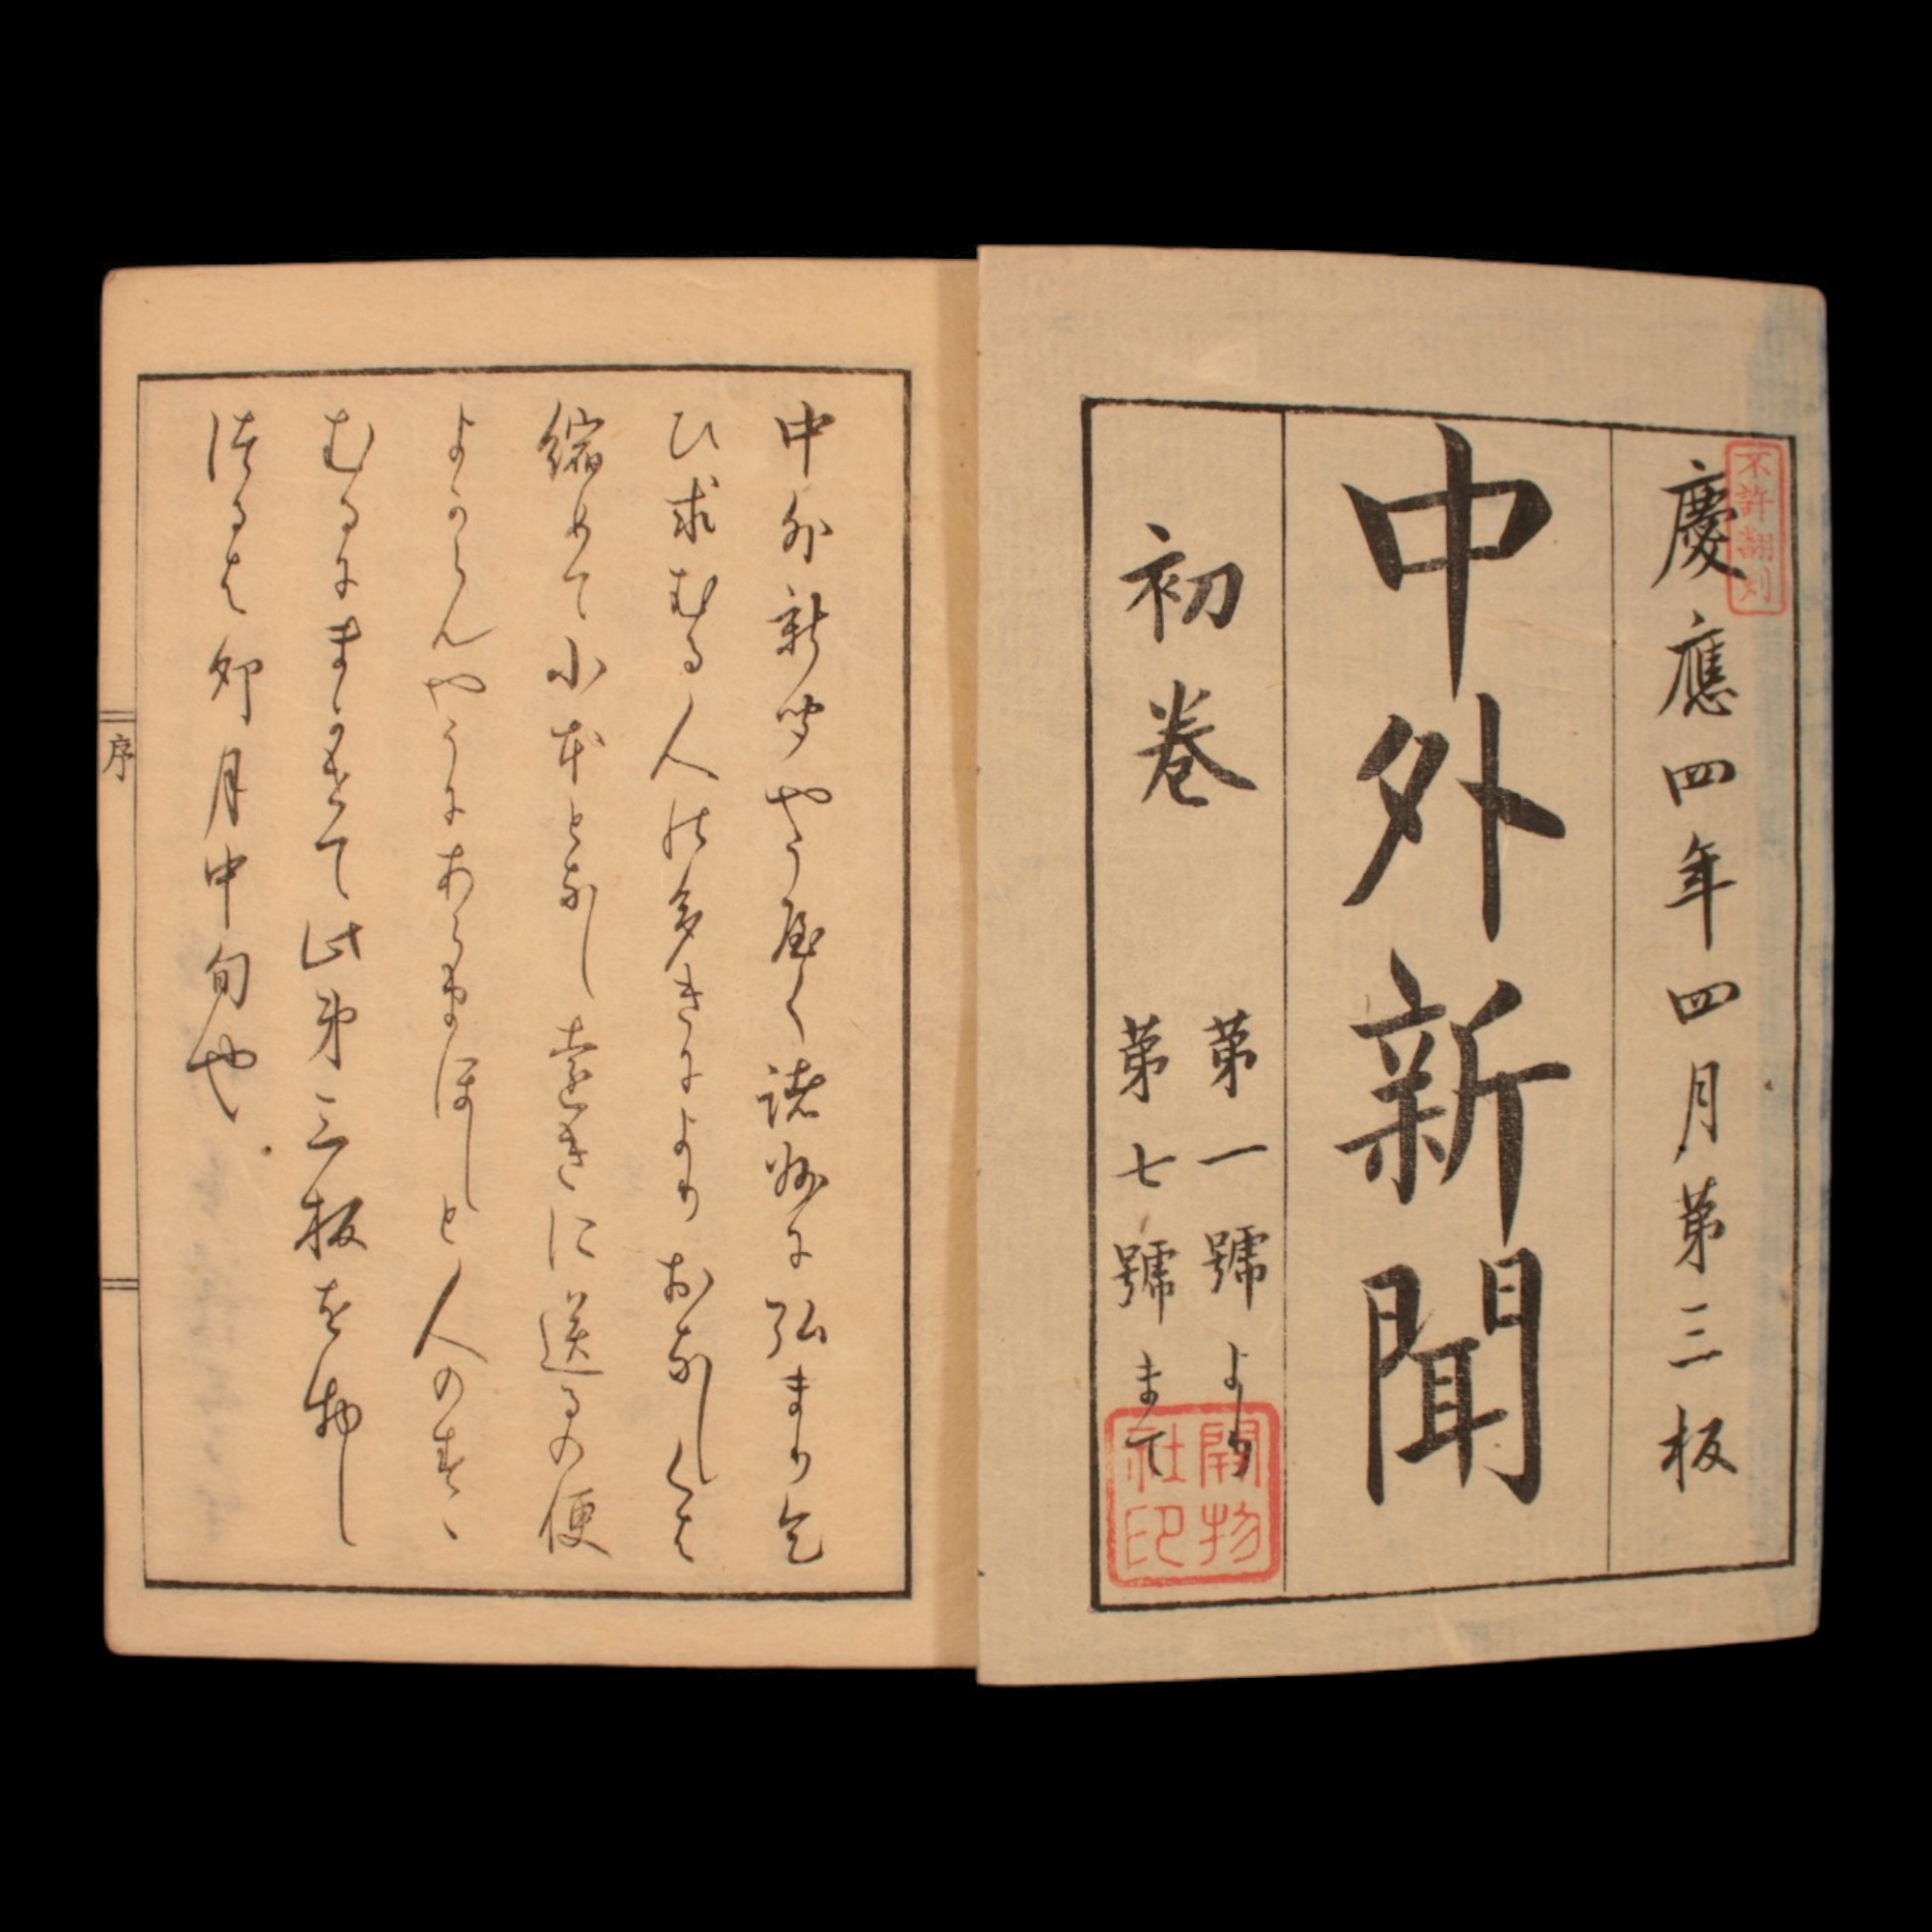 不許翻刻
慶應四年四月第三板
中外新聞
初巻
第一號より
第七號まて
開物社印
中外新聞やう屋く諸州に弘まり乞
ひ求むる人の多きにより おなしくは
縮めて小本となし遠きに送るの便
よからんやうにあらまほしと人のすゝ
むるにまかせて此第三板を物し
つるは卯月中旬也
序